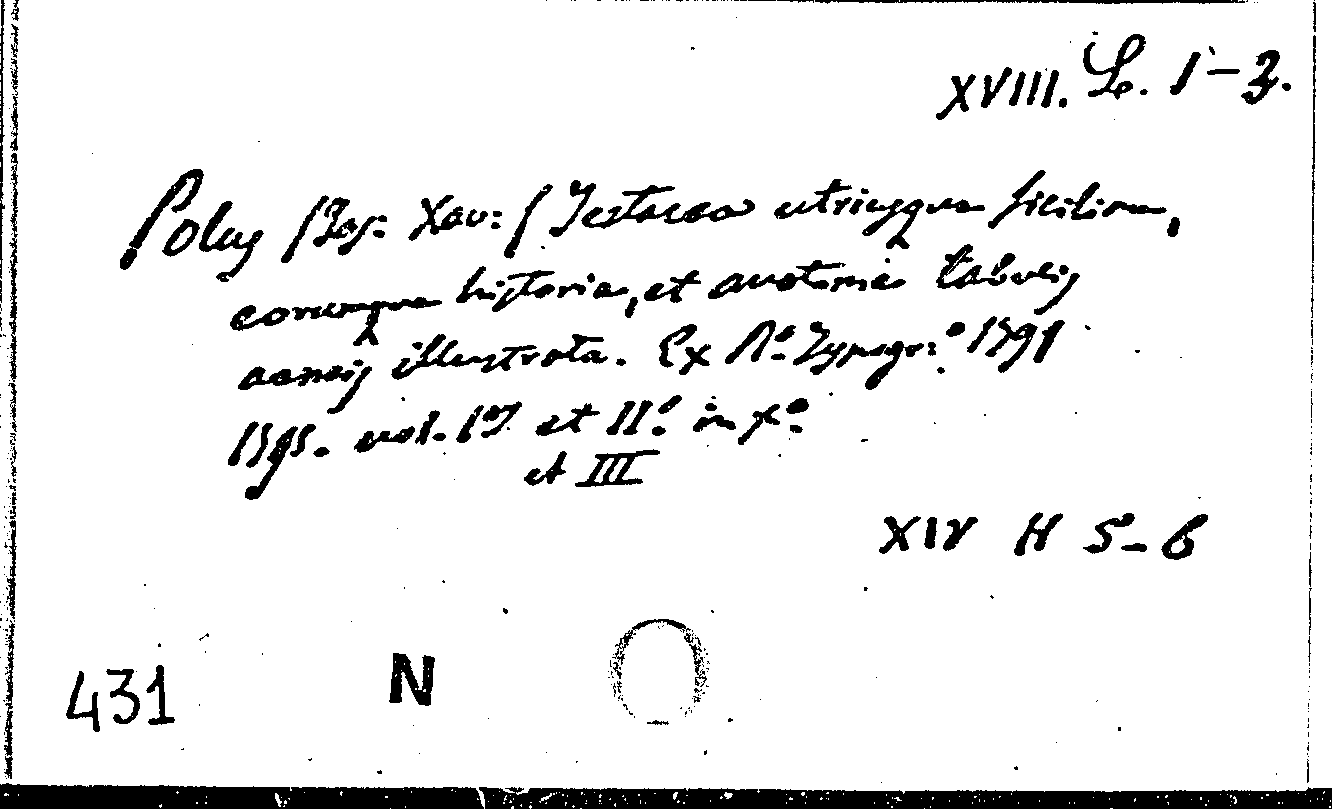 XVIII. L. 1-3.
Polus /Jos: Xav: / Testacea utriusque Siciliae,
eorumque historia, et anatome tabulis
aeneis illustrata. Ex R.ª Typogr:ª 1791
1795. vol. I.us et II.us in f.º
et III
XIV H 5-6
431 N